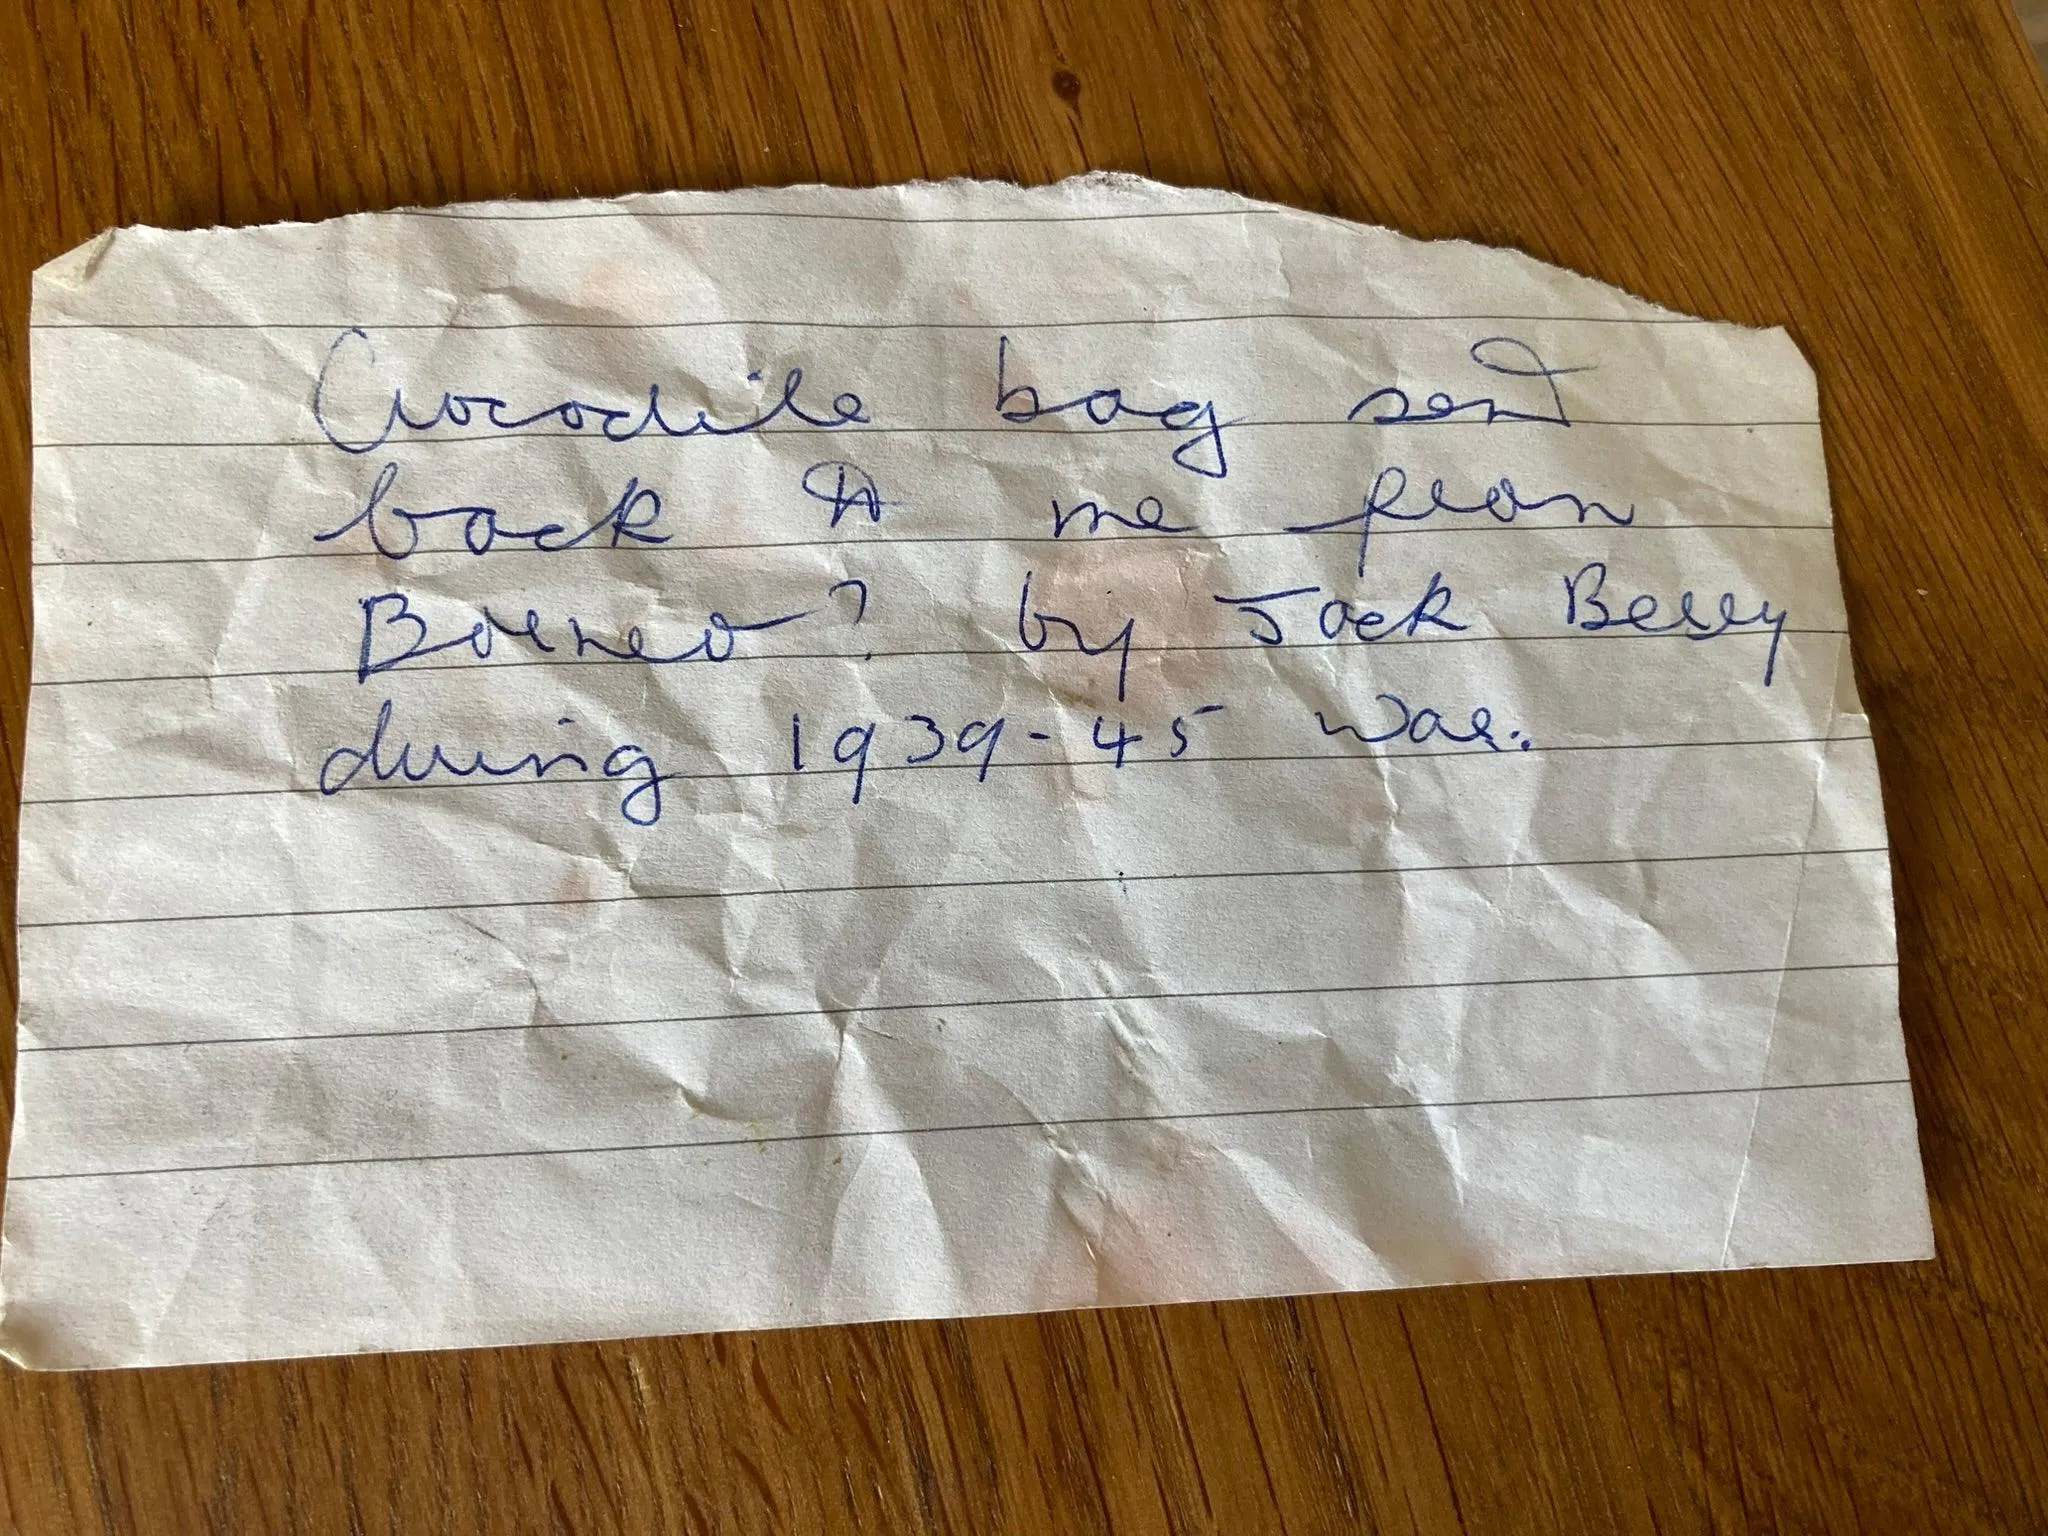 Crocodile bag sent
back to me from
Borneo? by Jack Berry
during 1939-45 War.